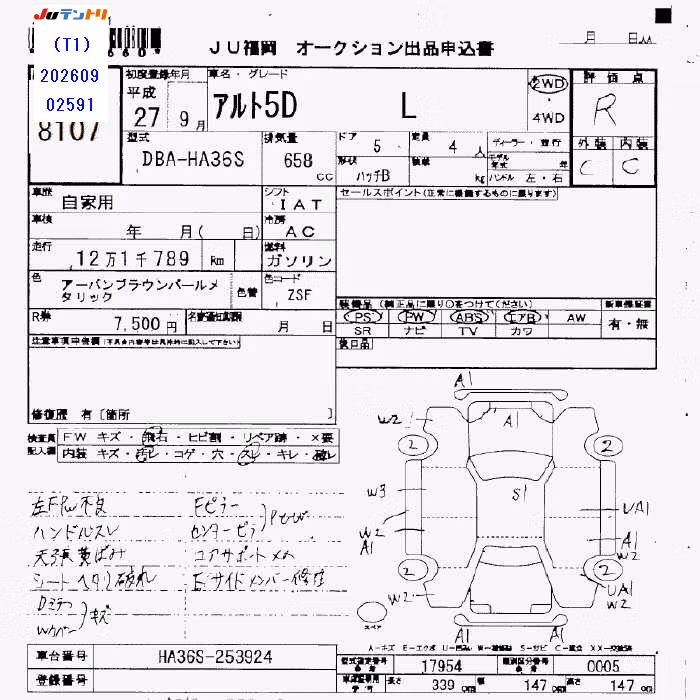 JUテントリ
(T1)
202609
02591
8107
JU福岡 オークション出品申込書
月 日
初度登録年月
平成
27 9月
車名・グレード
アルト5D L
2WD
4WD
評価点
R
外装 内装
C C
型式
DBA-HA36S
排気量
658 cc
ドア 5
定員 4人
形状 ハッチB
積載 kg
ディーラー・並行
モデル年式 年
ハンドル 左・右
車歴
自家用
シフト
IAT
セールスポイント(正常に機能するものに限ります)
車検
年 月( 日)
冷房
AC
走行
12万1千789 km
燃料
ガソリン
色
アーバンブラウンパールメタリック
色替
色コード
ZSF
R券
7,500円
名義変更期限
月 日
装備品(純正品に限り○をつけてください)
新車保証書
PS PW ABS エアB AW
SR ナビ TV カワ
有・無
後日品
注意事項申告欄
修復歴 有[箇所 ]
検査員
記入欄
FW キズ・飛石・ヒビ割・リペア跡・×要
内装 キズ・汚レ・コゲ・穴・スレ・キレ・破レ
左FPW不良
ハンドルスレ
天張黄ばみ
シートヘタリ破れ
Dミラー
Wカバー
キズ
Fピラー
センターピラー
コアサポートメカ
Fサイドメンバー修正
A1
W2
A1
2
2
W3
S1
UA1
W2
A1
A1
W2
2
2
W2
UA1
W2
スペア
A1
A1
A-キズ E-エクボ
車台番号
HA36S-253924
型式指定番号
17954
類別区分番号
0005
登録番号
長さ 339 cm
幅 147 cm
高さ 147 cm